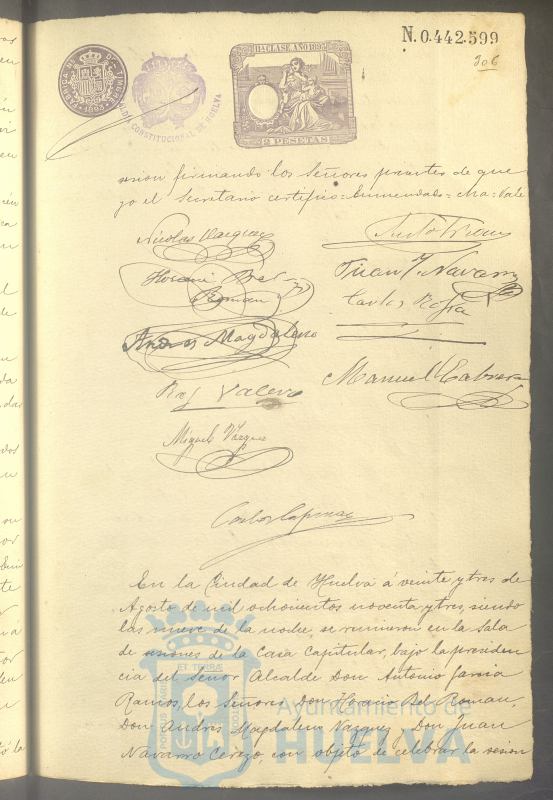 N. 0.442.599
306
11A CLASE. AÑO 1893
2 PESETAS
CONSTITUCIONAL DE HUELVA
sesion firmando los Señores presentes de que
yo el Secretario certifico = Enmendado = Ma = Vale
Nicolas Vazquez
Justo
Horacio Bel
Roman
Juan J. Navarro
Carlos
Andres Magdaleno
Manuel Cabrera
Valero
Miguel Vázquez
Carlos
En la Ciudad de Huelva á veinte y tres de
Agosto de mil ochocientos noventa y tres, siendo
las nueve de la noche, se reunieron en la Sala
de sesiones de la Casa Capitular, bajo la presiden
cia del Señor Alcalde Don Antonio Garcia
Ramos, los Señores Don Horacio Bel Roman,
Don Andres Magdaleno Vazquez y Don Juan
Navarro Cerezo, con objeto de celebrar la sesion
Ayuntamiento de
HUELVA